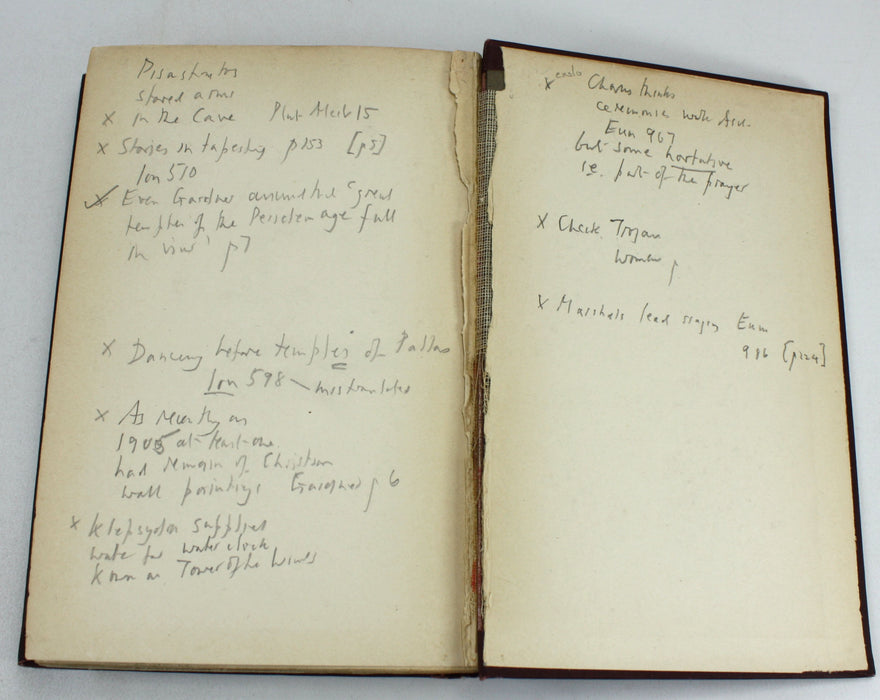 Pisastratos
stored arms
x in the Cave Plut Alcib 15
x Stories in tapestry p253 [p5]
Ion 510
x Even Gardner assumes the "great
temples of the Periclean age full
in view" p7
x Dancing before temples of Pallas
Ion 598 mistranslated
x As recently as
1905 at least one
had remains of Christian
wall paintings Gardner p 6
x Klepsydra supplied
water for water clock
known as Tower of the Winds
x Chorus thinks
ceremonies with
Eum 967
but some hortative
ie. part of the prayer
x Check Trojan
Women p
x Marshals lead singing Eum
996 [p224]